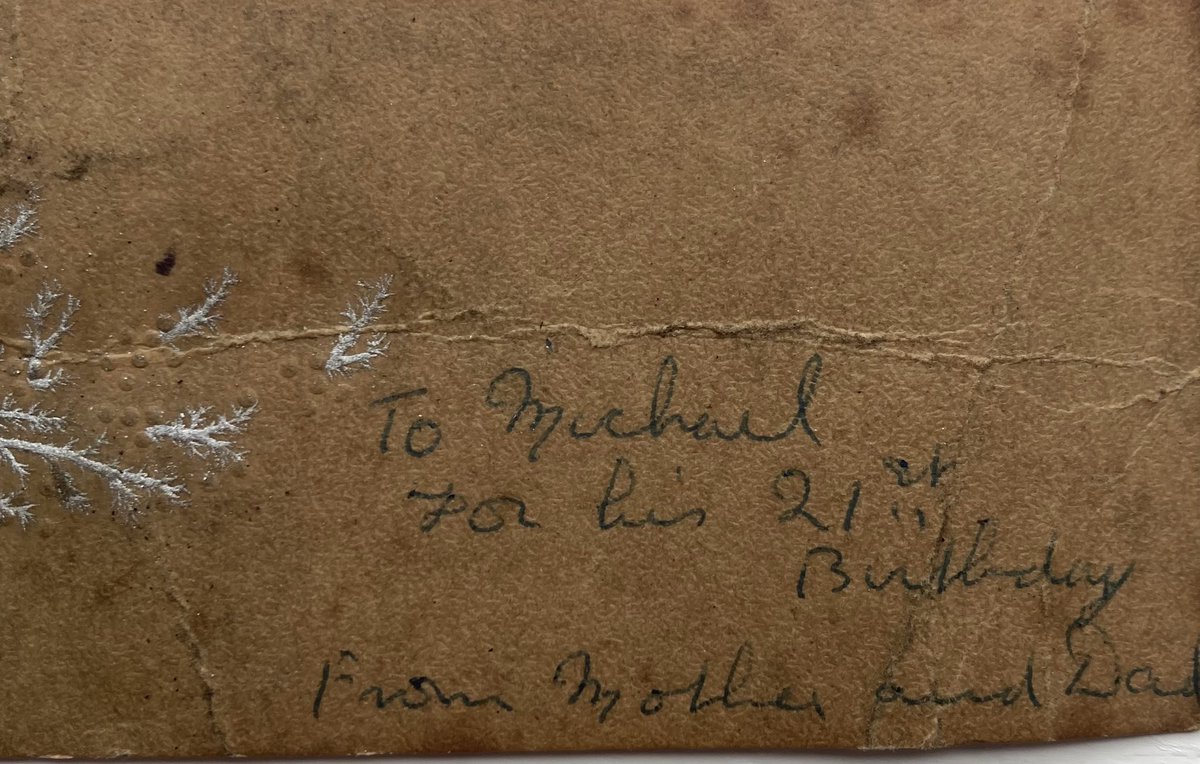 To Michael
For his 21st
Birthday
From Mother and Dad